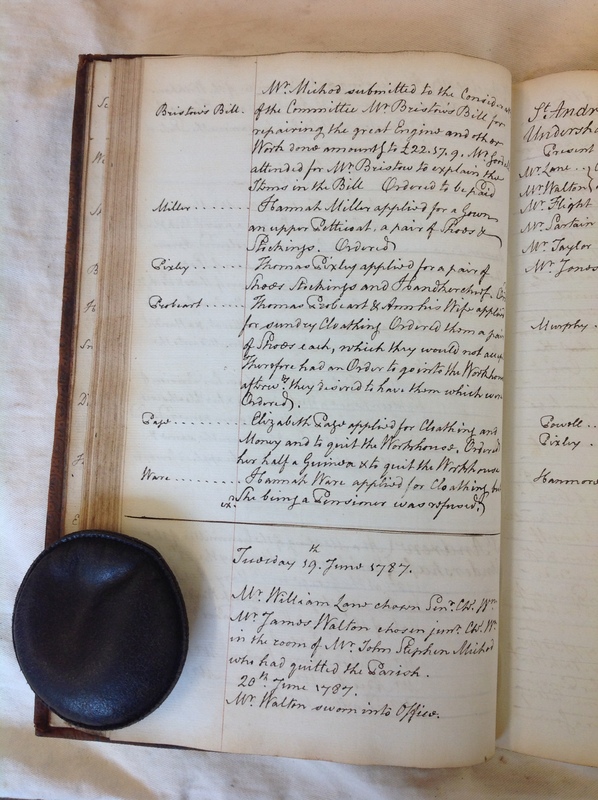 Mr. Michod submitted to the Consider
Bristow's Bill. of the Committee Mr. Bristow's Bill for
repairing the great Engine and other
Work done amountg to £22.57.9. Mr. Jones
attended for Mr. Bristow to explain the
Items in the Bill Ordered to be Paid
Miller ........ Hannah Miller applied for a Gown
an upper Petticoat, a pair of Shoes &
Stockings. Ordered
Pixley ........ Thomas Pixley applied for a pair of
Shoes Stockings and Handkerchief.
Probeart ...... Thomas Probeart & Ann his Wife applied
for sundry Cloathing Ordered them a pair
of Shoes each, which they would not accept
Therefore had an Order to go into the Workhouse
afterwds. they desired to have them which were
Ordered.
Page ........ Elizabeth Page applied for Cloathing and
Money and to quit the Workhouse. Ordered
her half a Guinea & to quit the Workhouse
Ware ........ Hannah Ware applied for Cloathing but
exd. She being a Pensioner was refused.
Tuesday 19th. June 1787.
Mr. William Lane chosen Senr. Ch. Wn.
Mr. James Walton chosen junr. Ch. Wn.
in the room of Mr. John Stephen Michod
who had quitted the Parish.
20th June 1787.
Mr. Walton sworn into Office.
St. Andr
Undersha
Present
Mr. Lane
Mr. Walton
Mr. Flight
Mr. Sartain
Mr. Taylor
Mr. Jones
Murphy
Powell
Pixley
Hanmore